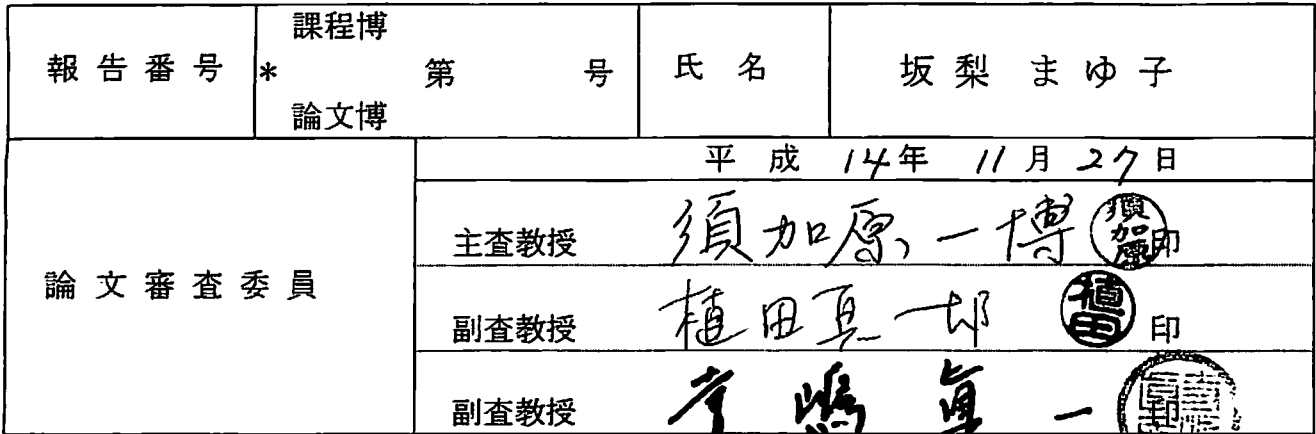 報告番号 * 課程博 論文博 第 号 氏名 坂梨 まゆ子
論文審査委員
平成 14年 11月 27日
主査教授 須加原 一博 須加原 印
副査教授 植田真一郎 植田 印
副査教授 眞一 印